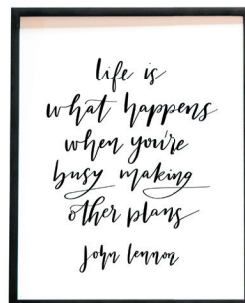 life is
what happens
when you're
busy making
other plans
John lennon